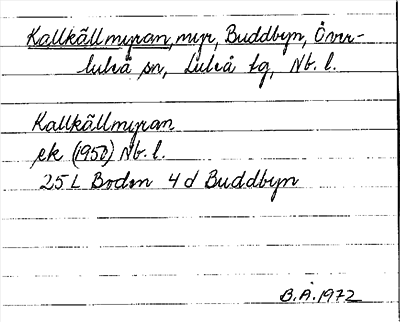 Kallkällmyran, myr, Buddbyn, Över-
luleå sn, Luleå tg, Nb. l.
Kallkällmyran
ek (1950) Nb. l.
25 L Boden 4 d Buddbyn
B.Å. 1972